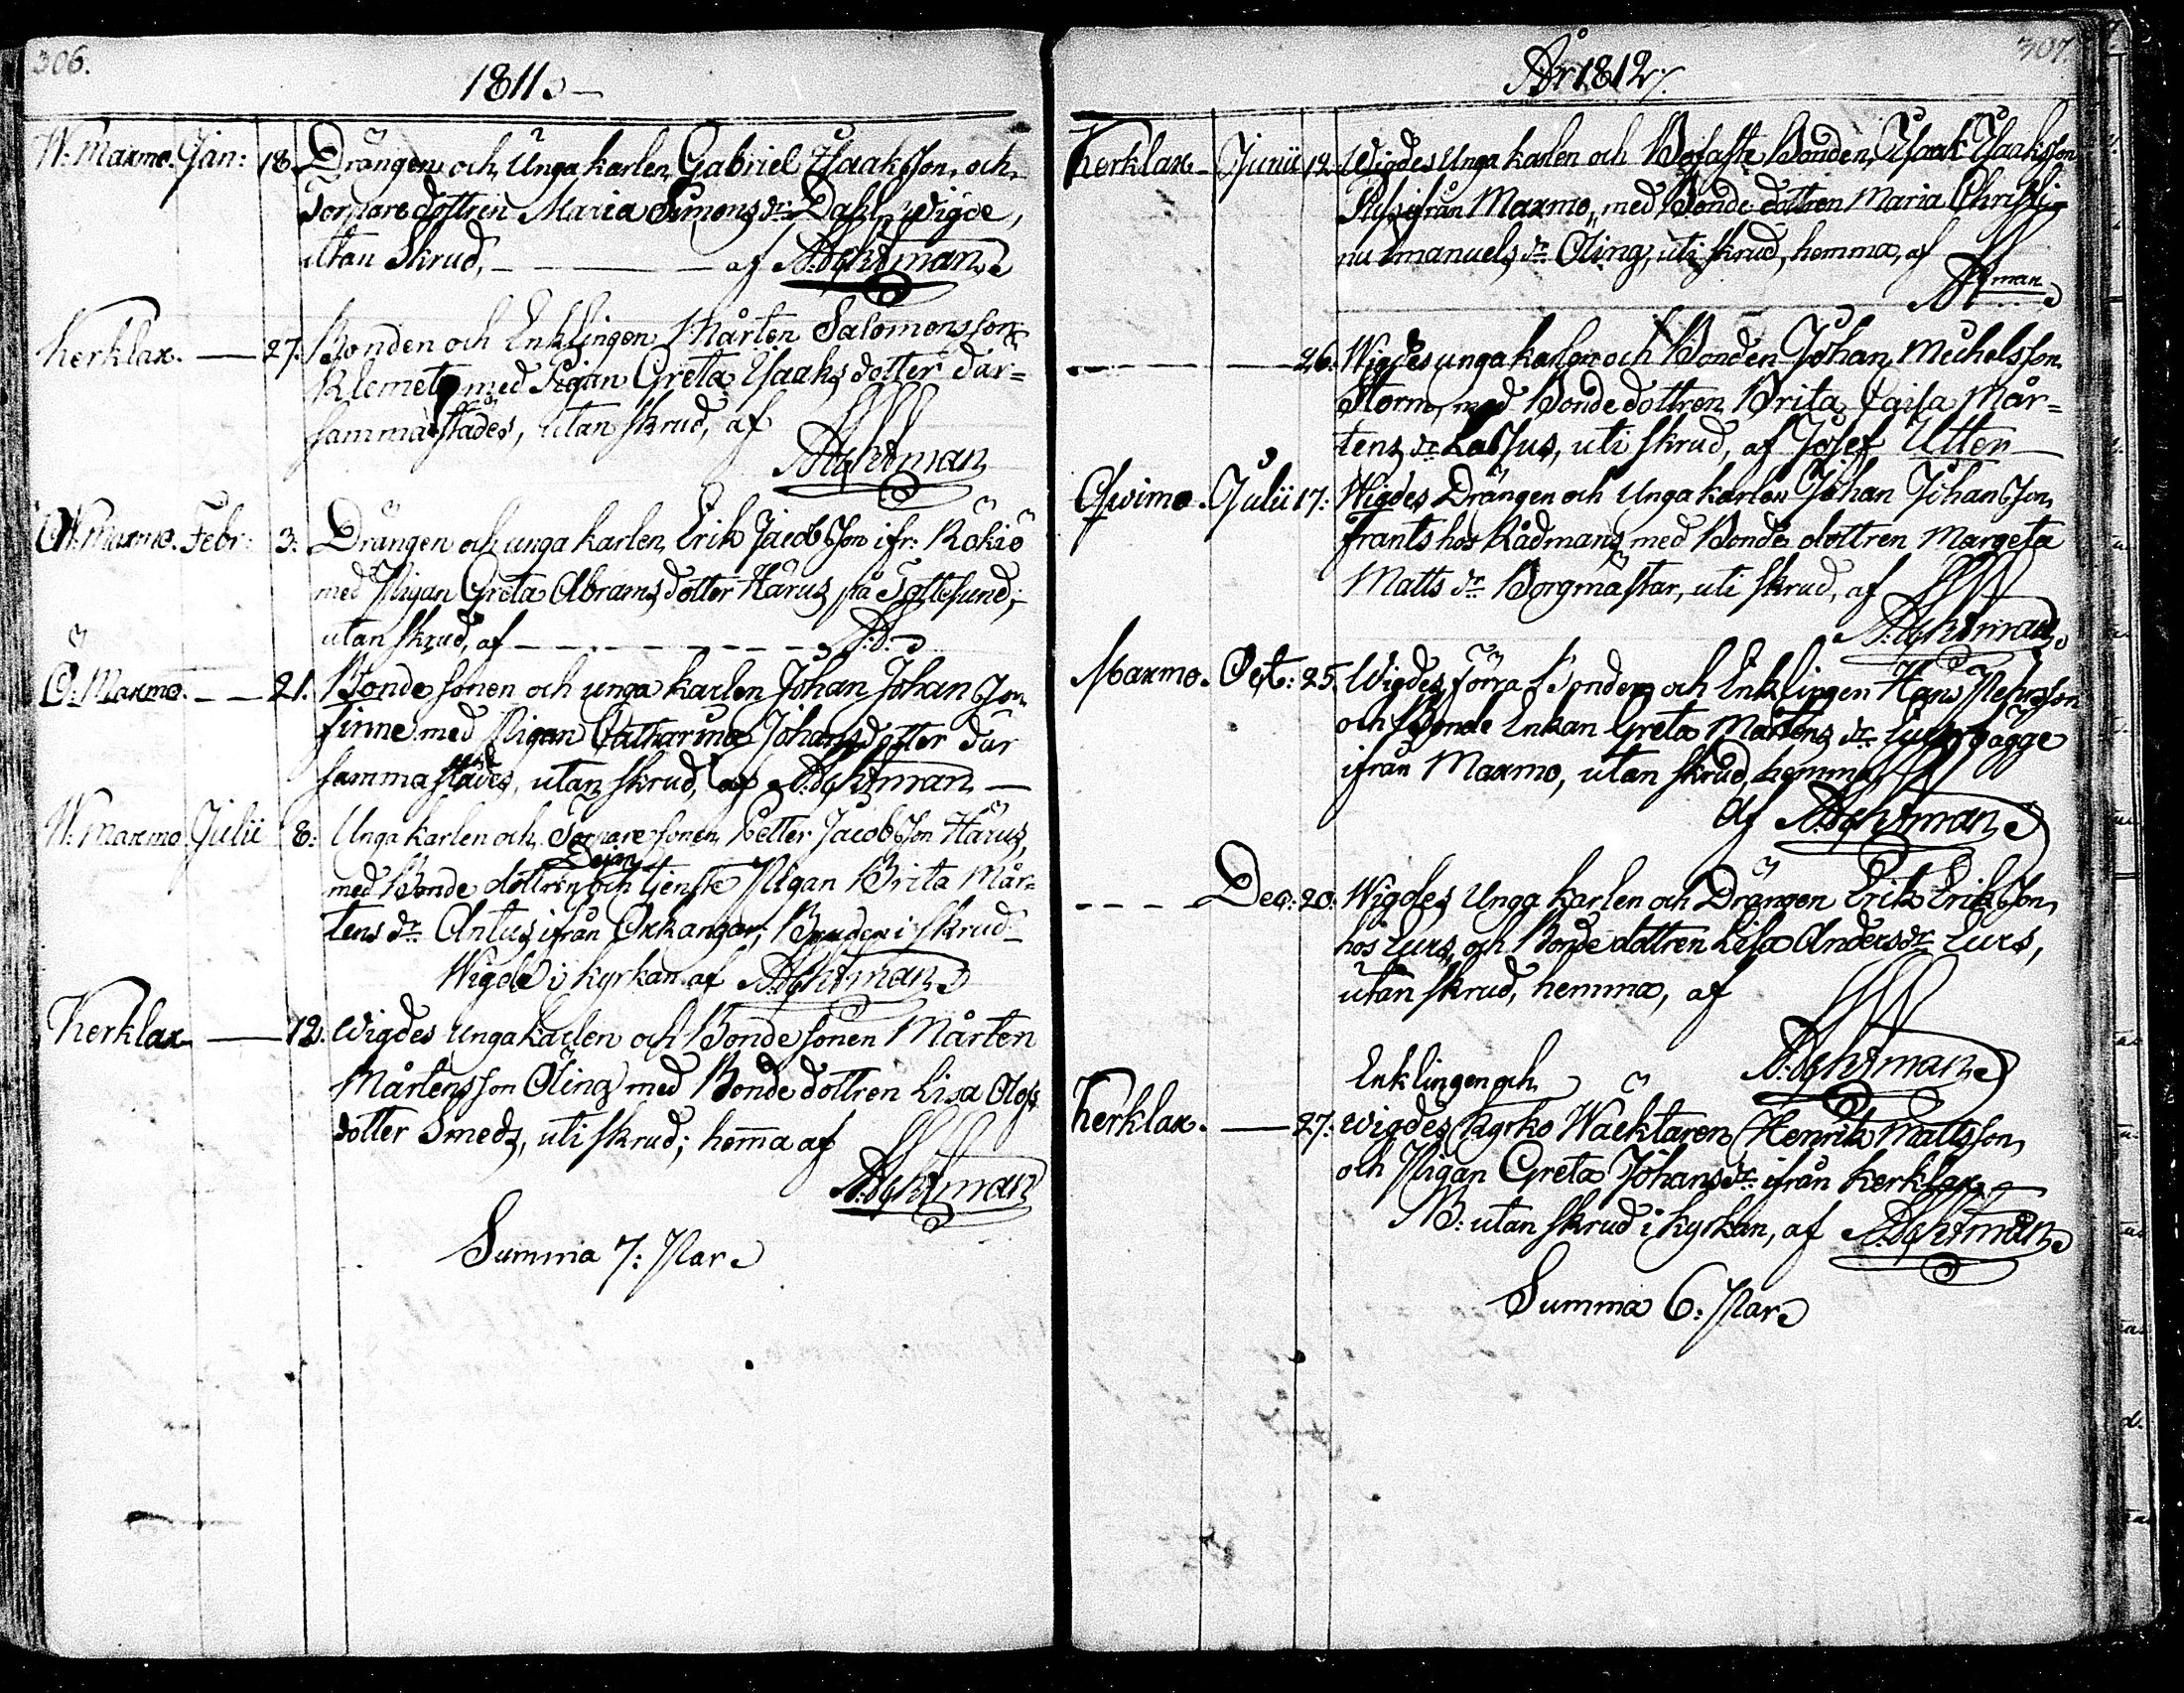 306.
1811.
W: Maxmo. Jan: 18. Drängen och Unga karlen Gabriel Isaaksson, och
Torpare dottren Maria Simons dr Dahl, wigde,
utan Skrud, — af
Kerklax. — 27. Bonden och Enklingen Mårten Salomonsson
Klemets med Pigan Greta Isaaks dotter där=
sammastädes, utan skrud, af
W. Maxmo. Febr: 3. Drängen och unga karlen Erik Jacobsson ifr: Rökiö
med Pigan Greta Abrams dotter Härus på Tottesund,
utan skrud, af —
Ö: Maxmo. — 21. Bonde sonen och unga karlen Johan Johansson
Finne med Pigan Catharina Johans dotter där
sammastädes, utan skrud, af
W. Maxmo Julii 8: Unga karlen och Torpare sonen Petter Jacobsson Härus,
med Bonde dottren och tjenste Pigan Brita Mår=
tens dr Antus ifrån Oxkangar; Bruden i skrud
Wigde i kyrkan af
Kerklax — 12. Wigdes Unga karlen och Bonde sonen Mårten
Mårtensson Öling med Bonde dottren Lisa Olofs
dotter Smeds, uti skrud; hemma af
Summa 7: Par
307.
År 1812.
Kerklax — Junii 12. Wigdes Unga karlen och Bofaste Bonden, Isaak Isaksson
ifrån Maxmo, med Bonde dottren Maria Christi=
na Emanuels dr Öling, uti skrud, hemma, af
— 26. Wigdes unga karlen och Bonden Johan Michelsson
Storm, med Bonde dottren Brita Caisa Mår=
tens dr Lassus, uti skrud, af Josef Utter
Qwimo. Julii 17: Wigdes Drängen och Unga karlen Johan Johansson
Frants hos Rådmans med Bonde dottren Margeta
Matts dr Borgmästar, uti skrud, af
Maxmo. Oct: 25. Wigdes förra Bonden och Enklingen Hans Pehrsson
och Bonde Enkan Greta Mårtens dr
ifrån Maxmo, utan skrud, hemma,
Af
— Dec: 20. Wigdes Unga karlen och Drängen Erik Eriksson,
hos Lurs, och Bonde dottren Lisa Anders dr Lurs,
utan skrud, hemma, af
Enklingen och
Kerklax. — 27. Wigdes Kyrko Wäcktaren Henrik Mattsson,
och Pigan Greta Johans dr ifrån Kerklax,
B: utan skrud i kyrkan, af
Summa 6: Par